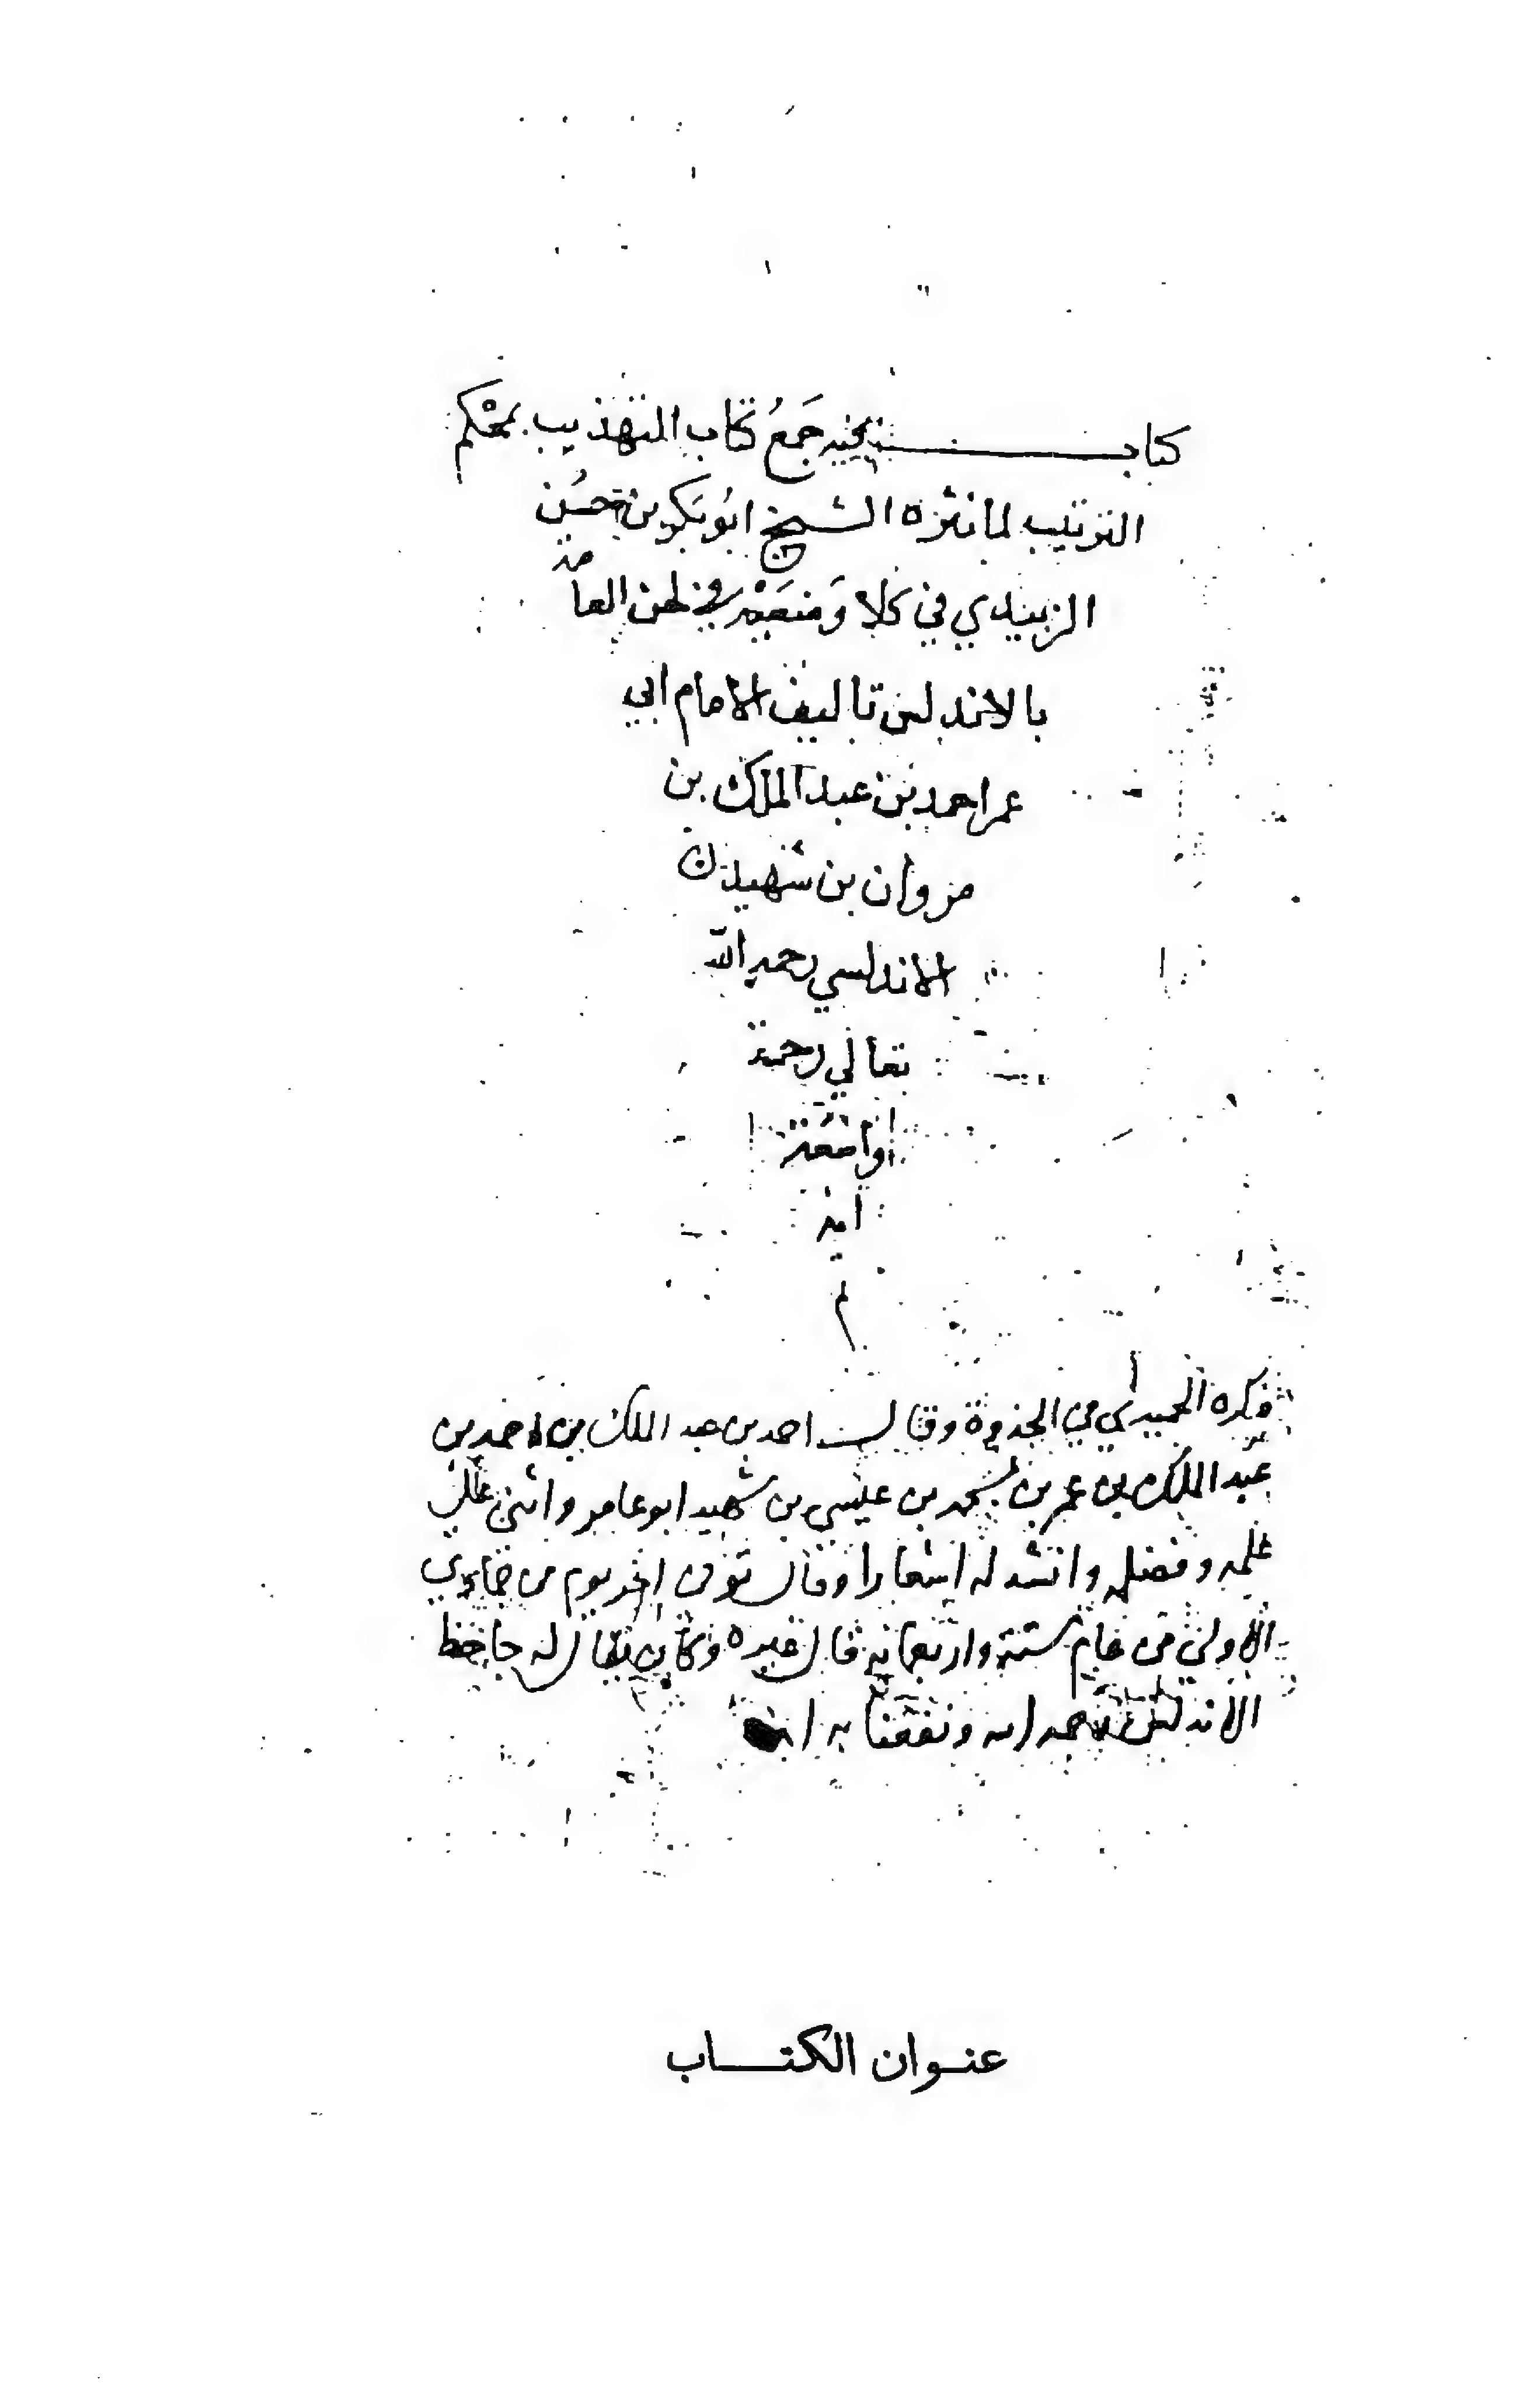 كتاب فيه جَمعُ كتاب التهذيب بمحْكم
الترتيب لما نثره الشيخ ابو بكر بن حسن
الزبيدي في كلا وضعيه في لحن العامة
بالاندلس تاليف الامام ابي
عمر احمد بن عبد الملك بن
مروان بن شهيد
الاندلسي رحمه الله
تعالي رحمة
واسعة
امين
م
ذكره الحميدي في الجذوة وقال احمد بن عبد الملك بن احمد بن
عبد الملك بن عمر بن محمد بن عيسى بن شهيد ابو عامر واثنى على
علمه وفضله وانشد له اشعارا وقال توفي اخر يوم من جمادي
الاولى من عام ستة واربعمائه قال غيره وكان يقال له جاحظ
الاندلس رحمه الله ونفعنا به
عنوان الكتاب